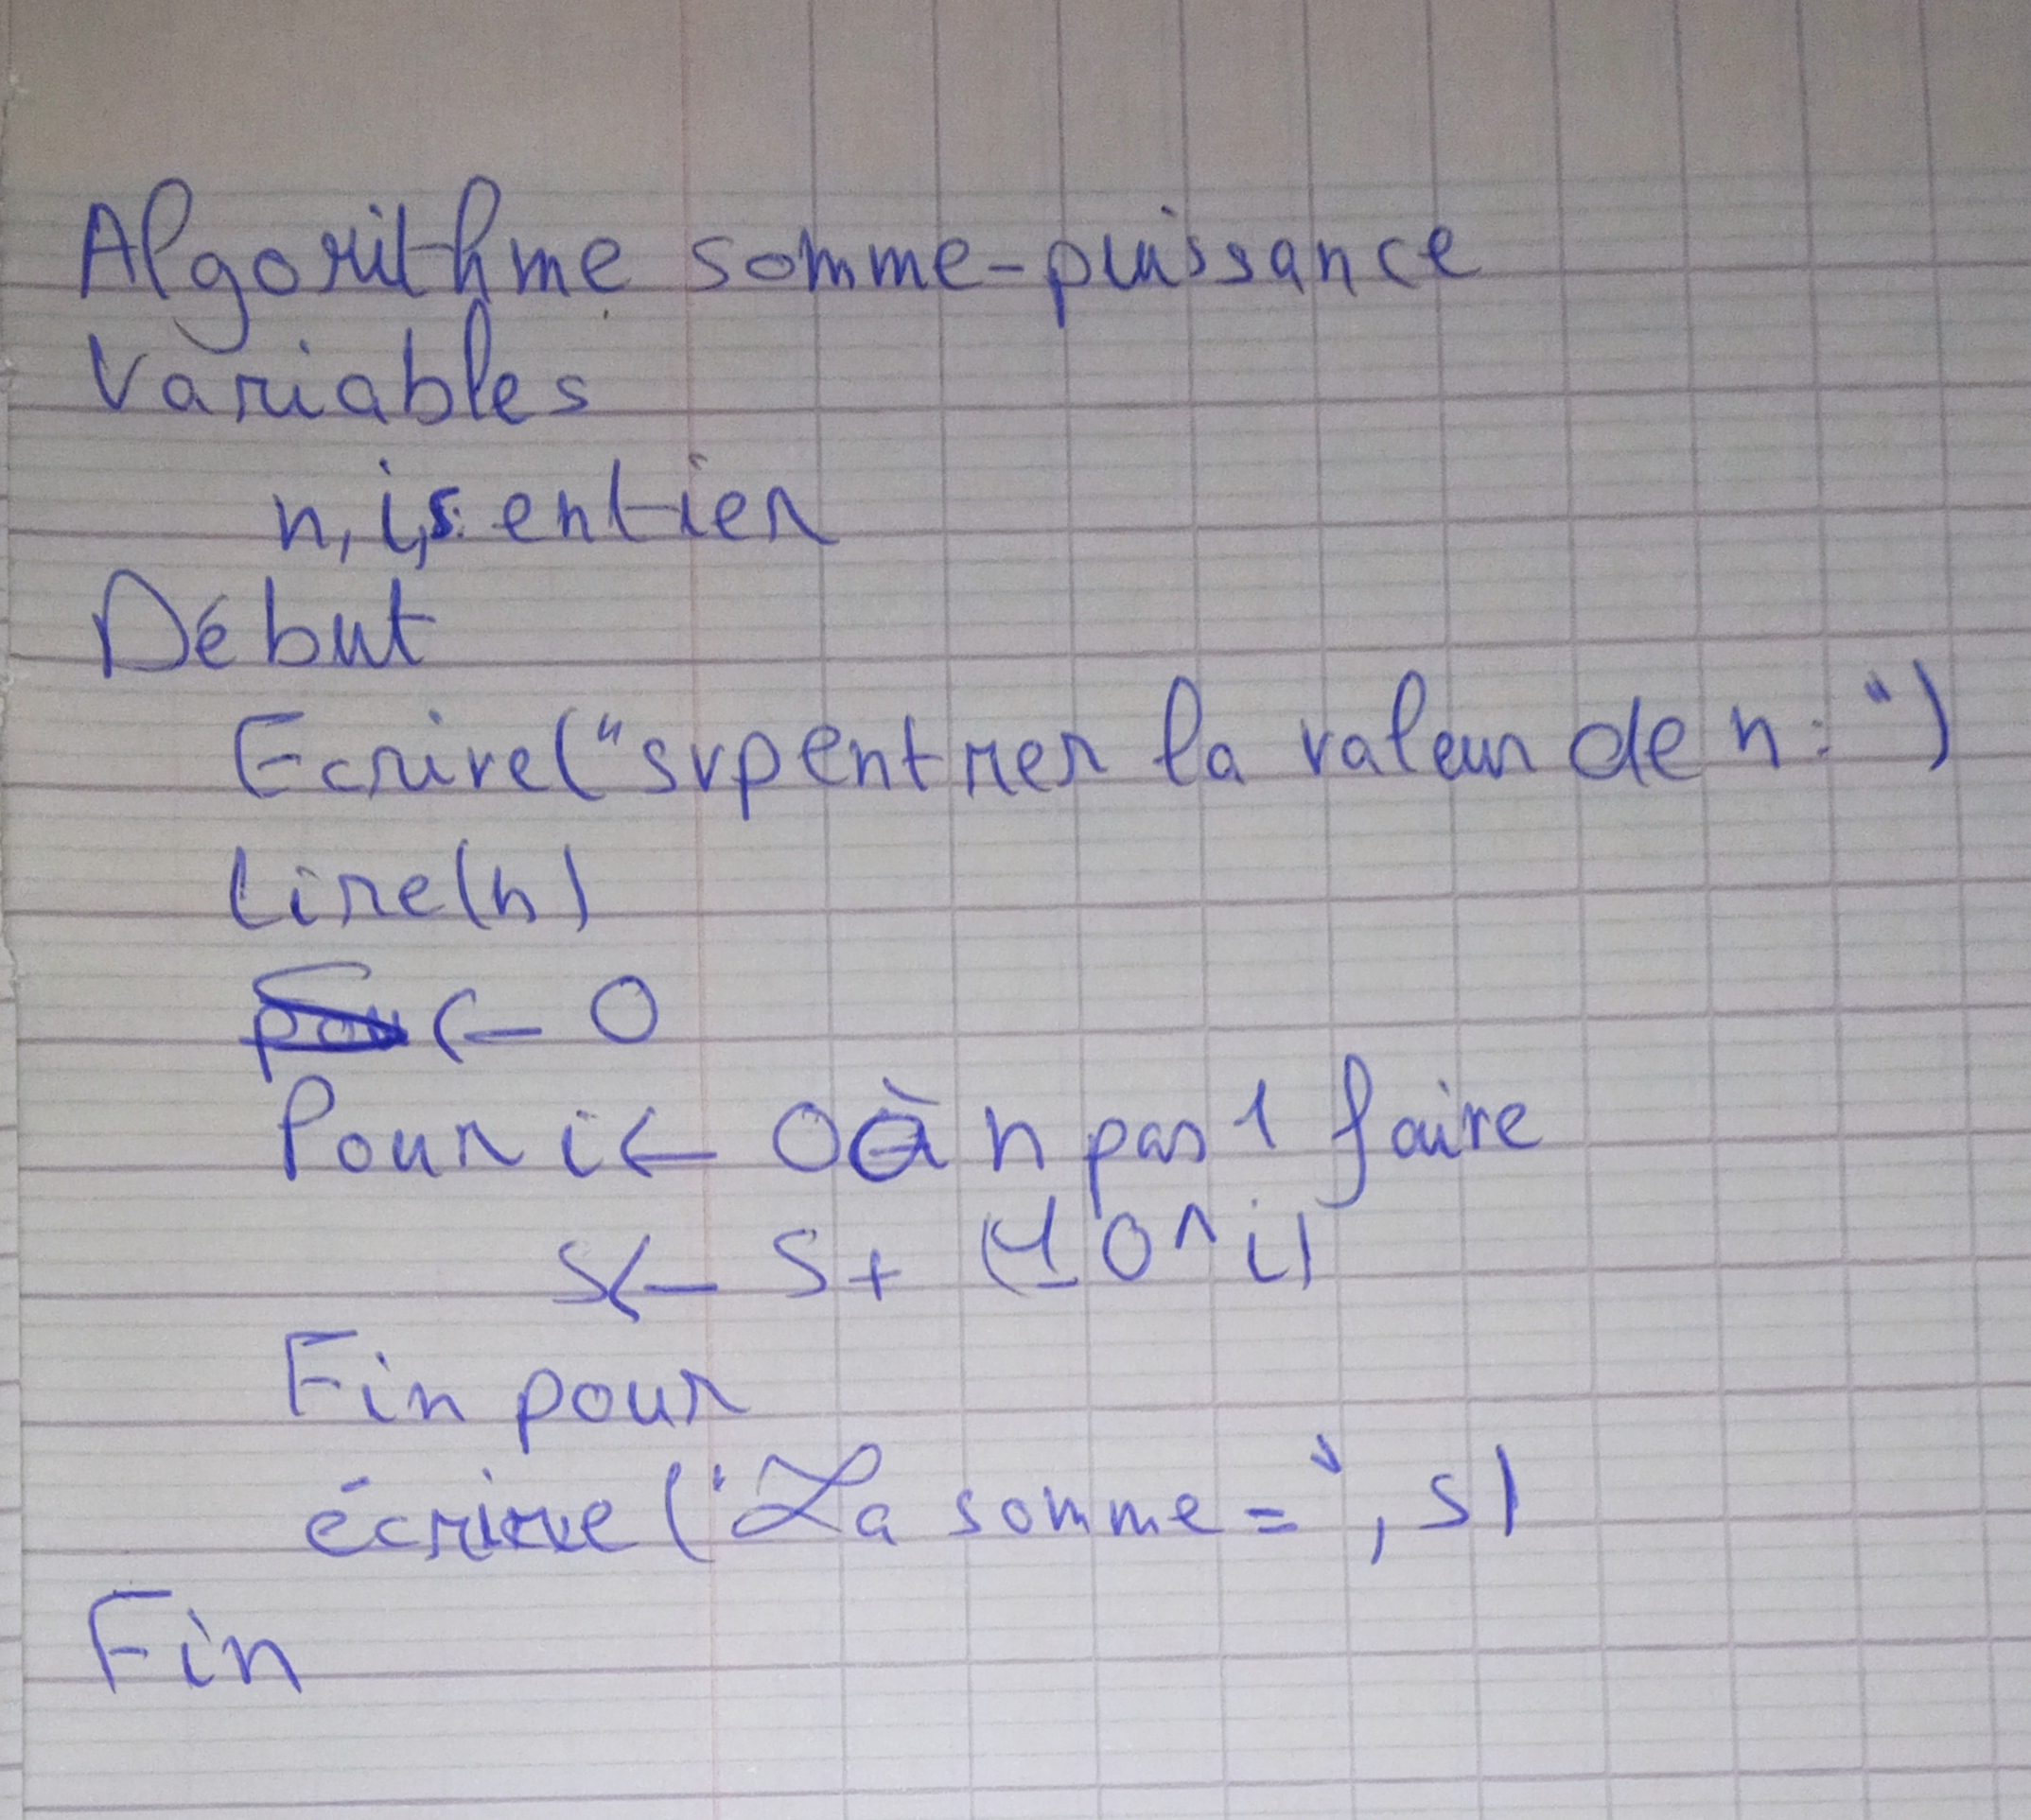 Algorithme somme-puissance
Variables
n, i, s: entier
Début
Ecrire("svp entrer la valeur de n: ")
Lire(n)
<- 0
Pour i <- 0 à n pas 1 faire
s <- s + (10^i)
Fin pour
écrire("La somme = ", s)
Fin